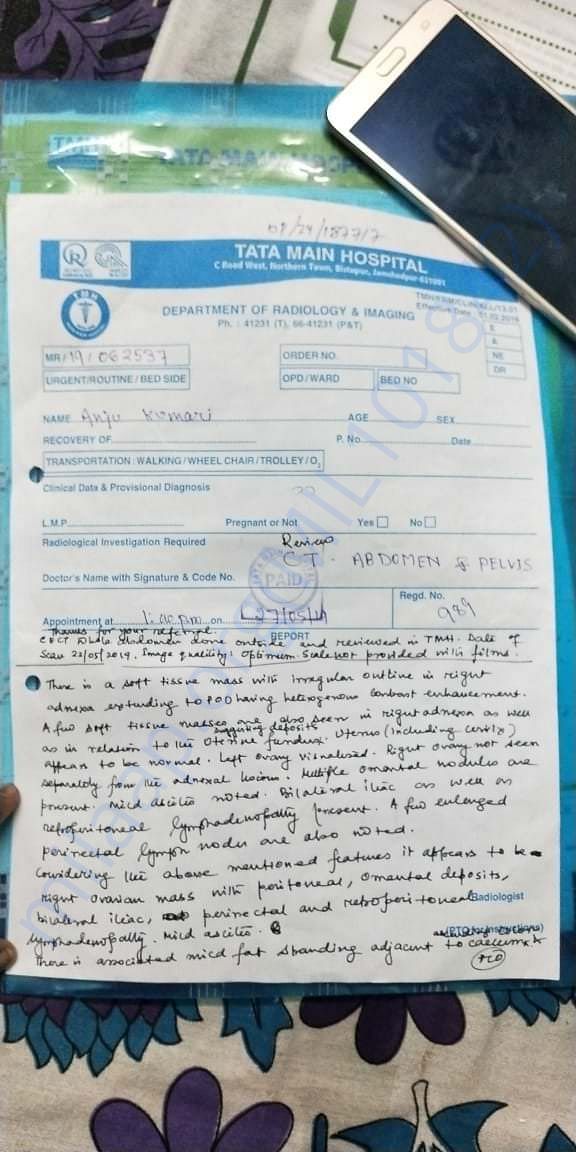 08/24/18777/7
TATA MAIN HOSPITAL
C Road West, Northern Town, Bistupur, Jamshedpur-831001
TMH
DEPARTMENT OF RADIOLOGY & IMAGING
Ph. : 41231 (T), 66-41231 (P&T)
Effective Date
E
A
NE
DR
MR/19/062537
ORDER NO.
URGENT/ROUTINE / BED SIDE
OPD/WARD
BED NO
NAME Anju Kumari AGE SEX
RECOVERY OF P. No. Date
TRANSPORTATION : WALKING / WHEEL CHAIR / TROLLEY / O2
Clinical Data & Provisional Diagnosis
L.M.P. Pregnant or Not Yes No
Radiological Investigation Required Review
CT - ABDOMEN & PELVIS
Doctor's Name with Signature & Code No.
PAID
Regd. No.
989
Appointment at on 27/05/19
Thanks for your referral.
REPORT
CECT Whole abdomen done outside and reviewed in TMH. Date of
Scan 22/05/2019. Image quality: Optimum. Scale not provided with films.
There is a soft tissue mass with irregular outline in right
adnexa extending to POD having heterogenous contrast enhancement.
A few soft tissue masses are also seen in right adnexa as well
suggesting deposits
as in relation to the uterine fundus. Uterus (including cervix)
appear to be normal. Left ovary visualised. Right ovary not seen
separately from the adnexal lesions. Multiple omental nodules are
present. Mild ascites noted. Bilateral iliac as well as
retroperitoneal lymphadenopathy present. A few enlarged
perirectal lymph nodes are also noted.
Considering the above mentioned features it appears to be
right ovarian mass with peritoneal, omental deposits,
bilateral iliac, perirectal and retroperitoneal
Radiologist
lymphadenopathy. Mild ascites.
(PTO for Instructions)
There is associated mild fat stranding adjacent to caecum
PTO
milaap.org